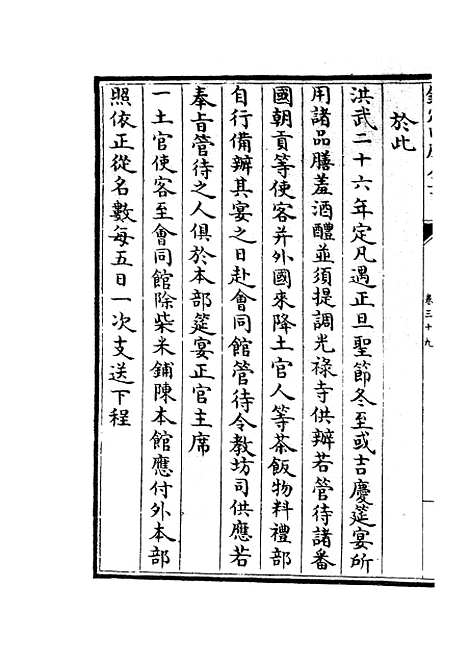 卷三十九
於此
洪武二十六年定凡遇正旦聖節冬至或吉慶筵宴所
用諸品膳羞酒醴並須提調光祿寺供辦若管待諸番
國朝貢等使客并外國來降土官人等茶飯物料禮部
自行備辦其宴之日赴會同館管待令教坊司供應若
奉旨管待之人俱於本部筵宴正官主席
一土官使客至會同館除柴米鋪陳本館應付外本部
照依正從名數每五日一次支送下程